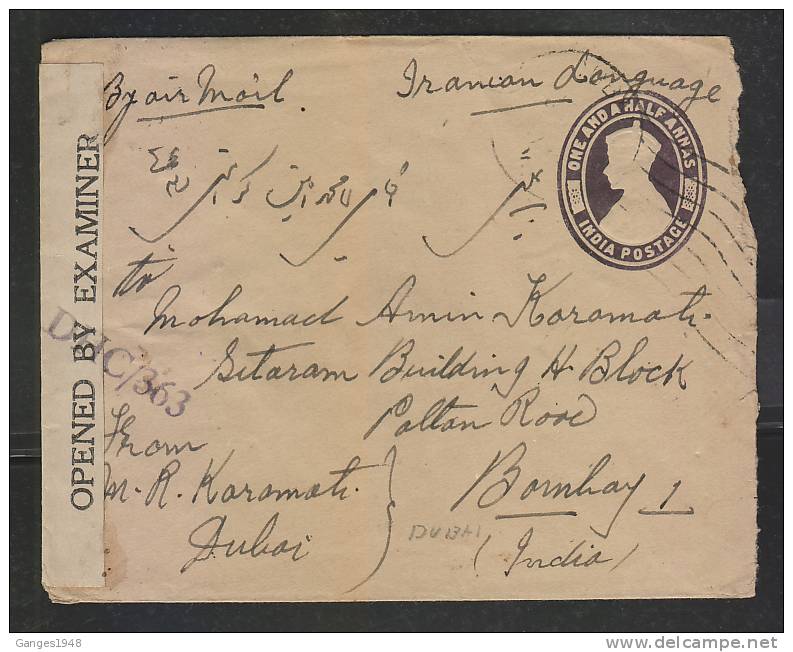 By air Mail
Iranian Language
ONE AND A HALF ANNAS
INDIA POSTAGE
to
Mohamad Amin Karamati
Sitaram Building H. Block
Paltan Road
Bombay 1
(India)
From
M. R. Karamati
Dubai
DUBAI
OPENED BY EXAMINER
DHC/363
Ganges1948
delcampe.net